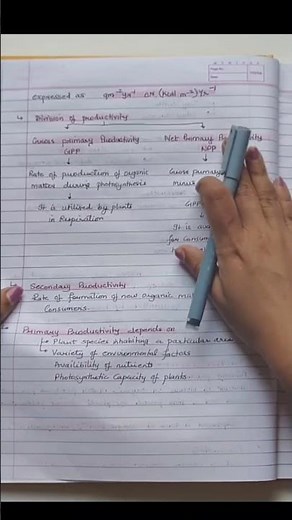 expressed as gm⁻²yr⁻¹ or (Kcal m⁻²) yr⁻¹
Division of productivity
Gross primary Productivity
GPP
Net Primary Productivity
NPP
Rate of production of organic
matter during photosynthesis
Gross primary
minus
It is utilised by plants
in Respiration
GPP -
It is
for Consum
Secondary Productivity
Rate of formation of new organic
Consumers.
Primary Productivity depends on
Plant species inhabiting a particular area
Variety of environmental factors
Availibility of nutrients
Photosynthetic Capacity of plants.